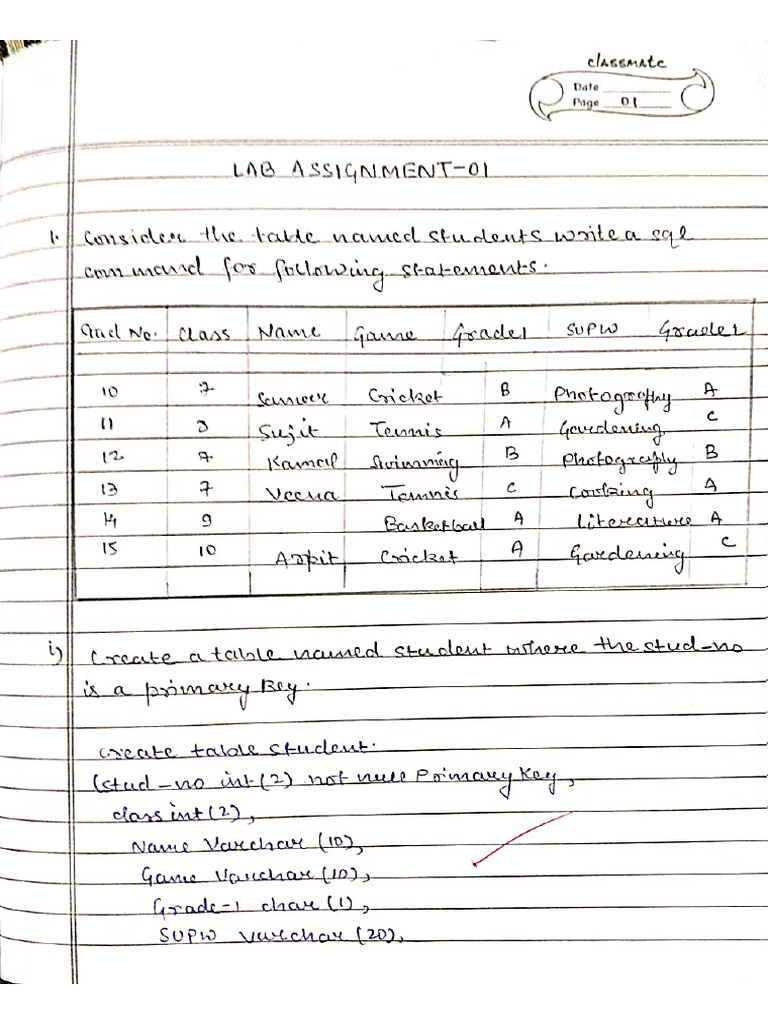 classmate
Date
Page 01
LAB ASSIGNMENT-01
1. Consider the table named students write a sql
command for following statements.
Stud No. Class Name Game Grade1 SUPW Grade2
10 7 Sameer Cricket B Photography A
11 8 Sujit Tennis A Gardening C
12 7 Kamal Swimming B Photography B
13 7 Veena Tennis C Cooking A
14 9 Basketball A Literature A
15 10 Arpit Cricket A Gardening C
i) Create a table named student where the stud-no
is a primary key.
create table student.
(stud-no int(2) not null Primary Key,
class int(2),
Name Varchar (10),
Game Varchar (10),
Grade-1 char (1),
SUPW varchar (20),